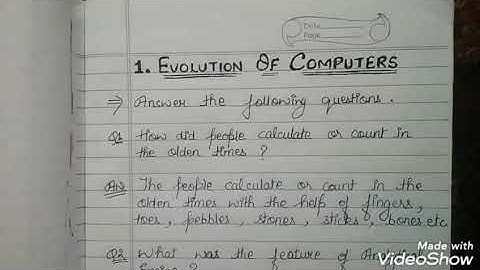 Date
Page
1. EVOLUTION OF COMPUTERS
⇒ Answer the following questions.
Q1 How did people calculate or count in
the olden times ?
Ans The people calculate or count in the
olden times with the help of fingers,
toes, pebbles, stones, sticks, bones etc
Q2 What was the feature of
Made with
VideoShow